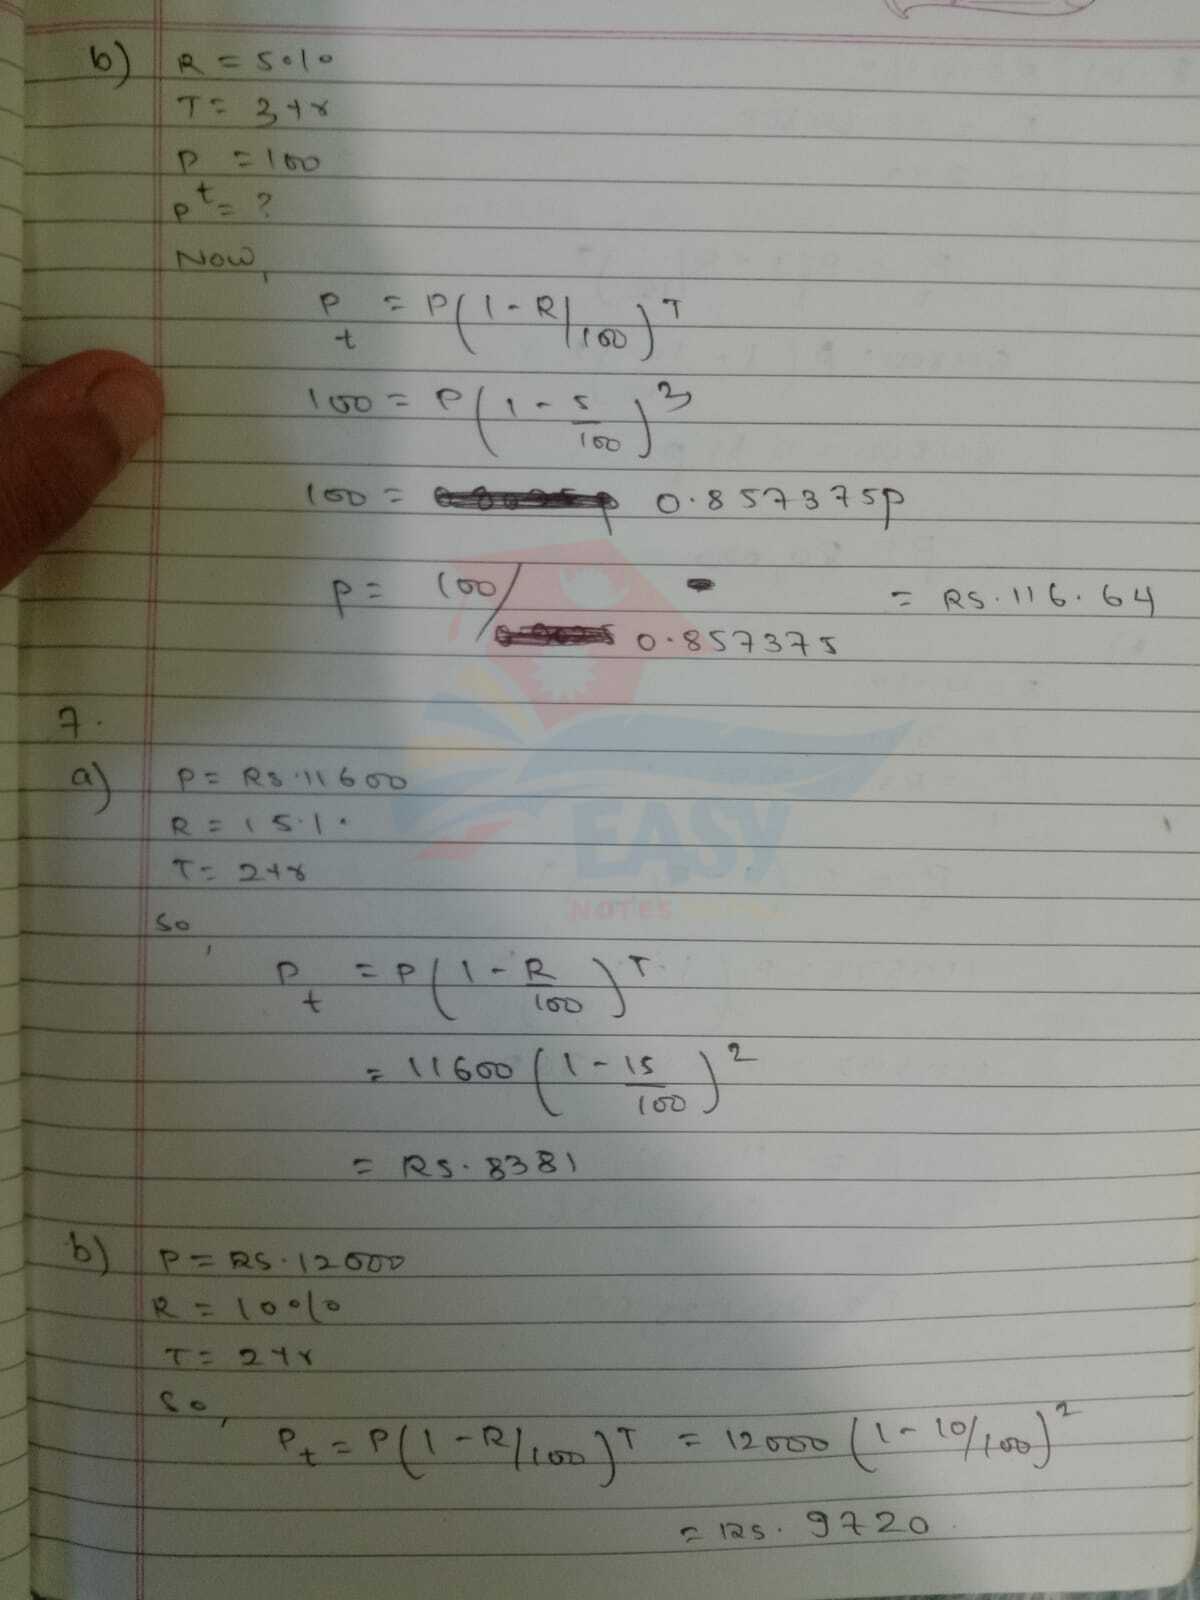 b) R = 5%
T = 3 yr
P = 100
P^t = ?
Now,
P_t = P(1 - R/100)^T
100 = P(1 - 5/100)^3
100 = 0.857375P
P = 100/0.857375 = RS. 116.64
7.
a) P = RS. 11600
R = 15%
T = 2 yr
So,
P_t = P(1 - R/100)^T
= 11600(1 - 15/100)^2
= RS. 8381
b) P = RS. 12000
R = 10%
T = 2 yr
So,
P_t = P(1 - R/100)^T = 12000(1 - 10/100)^2
= RS. 9720
EASY
NOTES